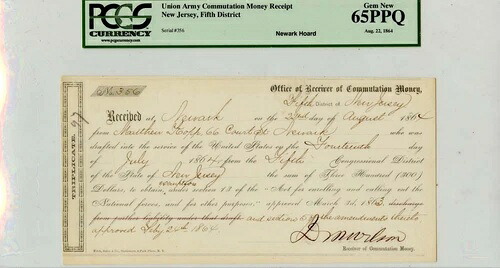 PCGS
CURRENCY
www.pcgscurrency.com
Union Army Commutation Money Receipt
New Jersey, Fifth District
Serial#356
Newark Hoard
Gem New
65PPQ
Aug. 22, 1864
No. 356
Office of Receiver of Commutation Money,
Fifth District of New Jersey
Received at Newark on the 22nd of August 1864
from Matthew 66 Court St Newark who was
drafted into the service of the United States on the Fourteenth day
of July 1864 from the Fifth Congressional District
of the State of New Jersey the sum of Three Hundred (300)
exemption
Dollars, to obtain, under section 13 of the "Act for enrolling and calling out the
National forces, and for other purposes," approved March 3d, 1863, discharge
from further liability under that draft and section of the amendments thereto
approved July 24th 1864
Receiver of Commutation Money.
TRIPLICATE.
97